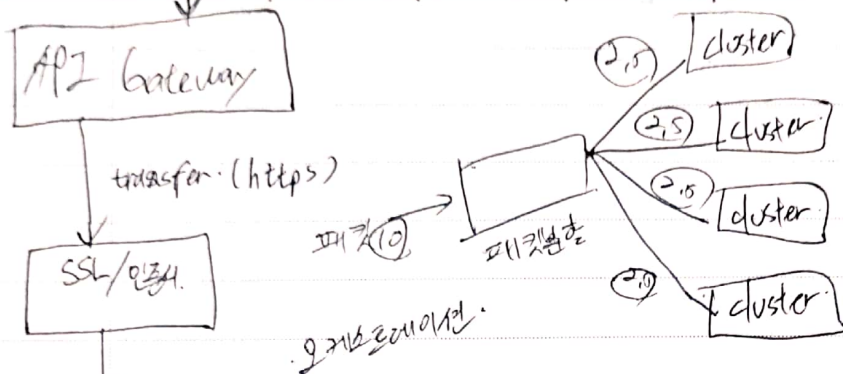 API Gateway
transfer. (https)
SSL/인증서.
패킷 10
패킷분할
2.5
cluster
2.5
cluster
2.5
cluster
cluster
오케스트레이션.